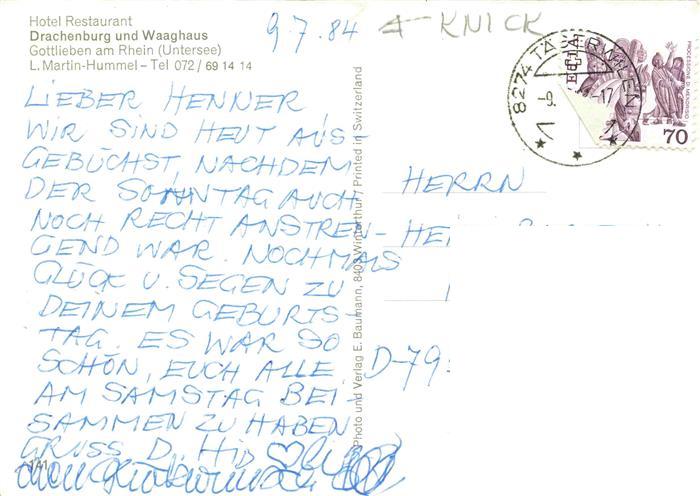 Hotel Restaurant
Drachenburg und Waaghaus
Gottlieben am Rhein (Untersee)
L. Martin-Hummel – Tel 072 / 69 14 14
9.7.84
KNICK
8274 TÄGERWILEN
-9.
-17
HELVETIA
PROCESSIONE DI MENDRISIO
70
LIEBER HENNER
WIR SIND HEUT AUS-
GEBÜCHST, NACHDEM
DER SONNTAG AUCH
NOCH RECHT ANSTREN-
GEND WAR. NOCHMALS
GLÜCK U. SEGEN ZU
DEINEM GEBURTS-
TAG. ES WAR SO
SCHÖN, EUCH ALLE
AM SAMSTAG BEI-
SAMMEN ZU HABEN
GRUSS D.
141
Photo und Verlag E. Baumann, 8403 Winterthur / Printed in Switzerland
HERRN
D-79